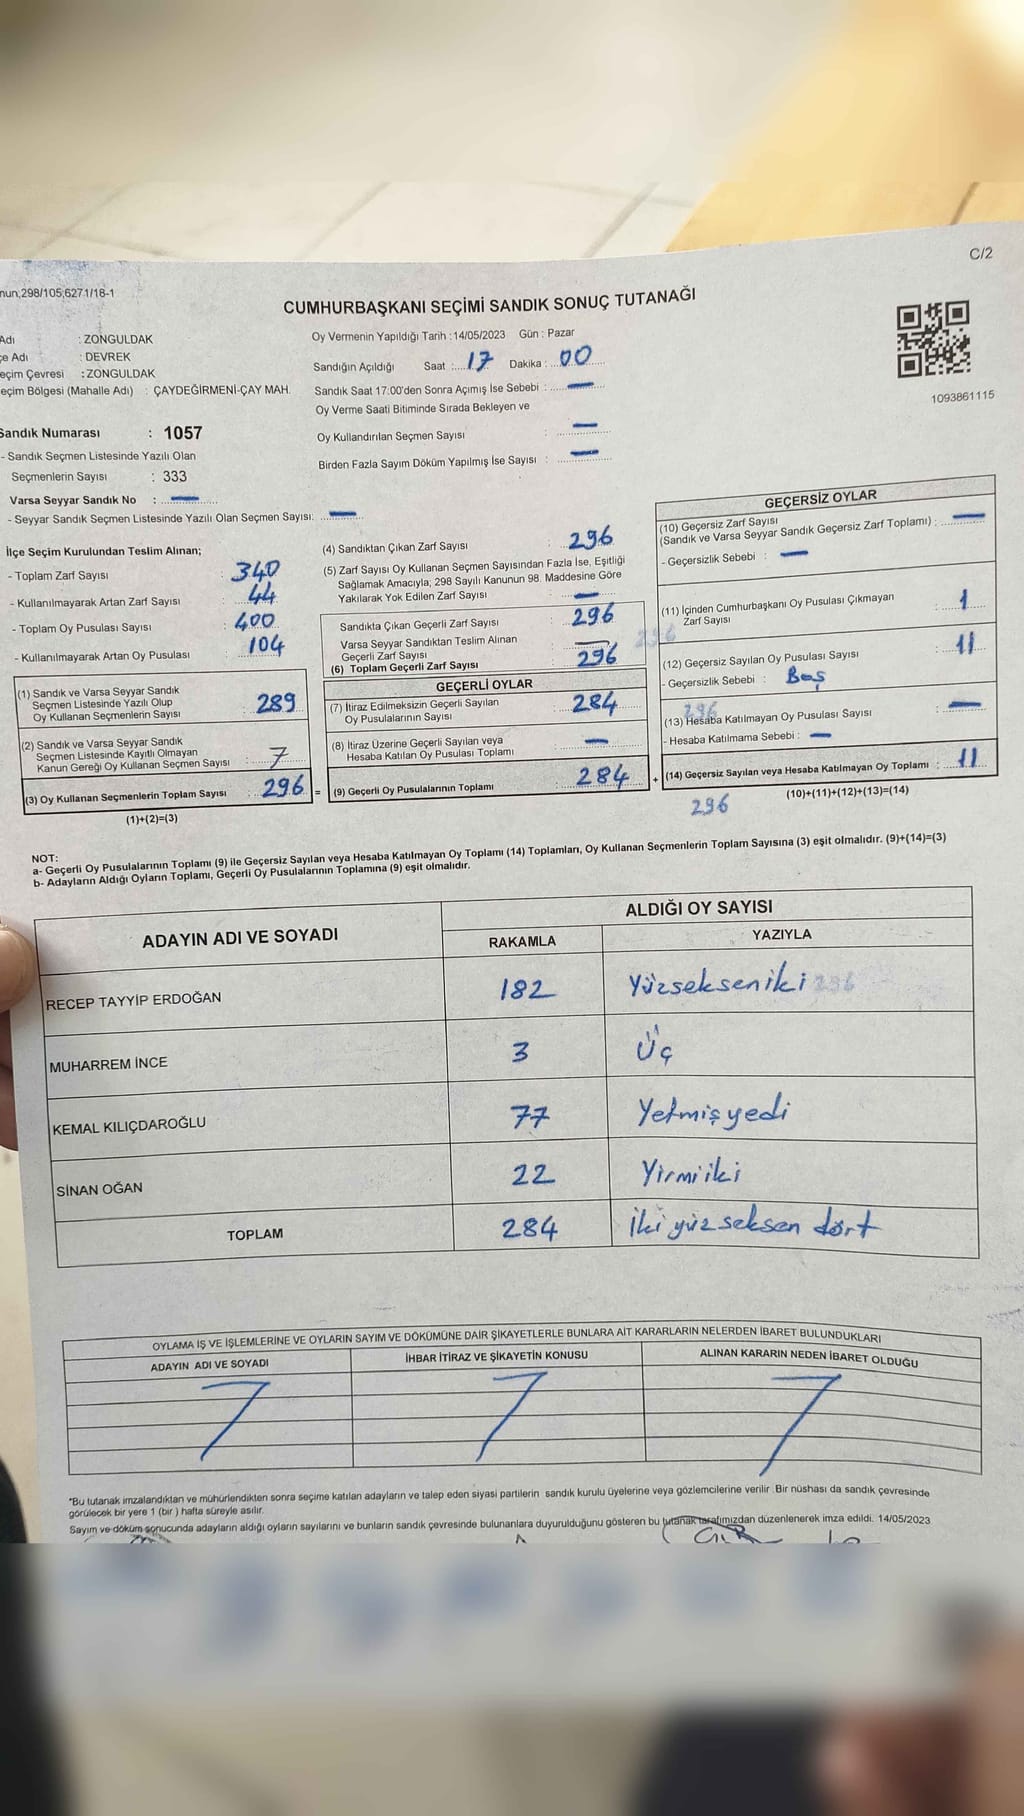 C/2
nun,298/105,627.1/18-1
CUMHURBAŞKANI SEÇİMİ SANDIK SONUÇ TUTANAĞI
Adı : ZONGULDAK
çe Adı : DEVREK
eçim Çevresi : ZONGULDAK
eçim Bölgesi (Mahalle Adı) : ÇAYDEĞİRMENİ-ÇAY MAH.
Oy Vermenin Yapıldığı Tarih : 14/05/2023 Gün : Pazar
Sandığın Açıldığı Saat : 17 Dakika : 00
Sandık Saat 17:00'den Sonra Açımış İse Sebebi : —
Oy Verme Saati Bitiminde Sırada Bekleyen ve
Oy Kullandırılan Seçmen Sayısı : —
Birden Fazla Sayım Döküm Yapılmış İse Sayısı : —
1093861115
Sandık Numarası : 1057
- Sandık Seçmen Listesinde Yazılı Olan
Seçmenlerin Sayısı : 333
Varsa Seyyar Sandık No : —
- Seyyar Sandık Seçmen Listesinde Yazılı Olan Seçmen Sayısı: —
İlçe Seçim Kurulundan Teslim Alınan;
- Toplam Zarf Sayısı : 340
- Kullanılmayarak Artan Zarf Sayısı : 44
- Toplam Oy Pusulası Sayısı : 400
- Kullanılmayarak Artan Oy Pusulası : 104
(1) Sandık ve Varsa Seyyar Sandık
Seçmen Listesinde Yazılı Olup
Oy Kullanan Seçmenlerin Sayısı : 289
(2) Sandık ve Varsa Seyyar Sandık
Seçmen Listesinde Kayıtlı Olmayan
Kanun Gereği Oy Kullanan Seçmen Sayısı : 7
(3) Oy Kullanan Seçmenlerin Toplam Sayısı : 296 =
(1)+(2)=(3)
(4) Sandıktan Çıkan Zarf Sayısı : 296
(5) Zarf Sayısı Oy Kullanan Seçmen Sayısından Fazla İse, Eşitliği
Sağlamak Amacıyla; 298 Sayılı Kanunun 98. Maddesine Göre
Yakılarak Yok Edilen Zarf Sayısı : —
Sandıkta Çıkan Geçerli Zarf Sayısı : 296
Varsa Seyyar Sandıktan Teslim Alınan
Geçerli Zarf Sayısı : —
(6) Toplam Geçerli Zarf Sayısı : 296
GEÇERLİ OYLAR
(7) İtiraz Edilmeksizin Geçerli Sayılan
Oy Pusulalarının Sayısı : 284
(8) İtiraz Üzerine Geçerli Sayılan veya
Hesaba Katılan Oy Pusulası Toplamı : —
(9) Geçerli Oy Pusulalarının Toplamı : 284 +
GEÇERSİZ OYLAR
(10) Geçersiz Zarf Sayısı
(Sandık ve Varsa Seyyar Sandık Geçersiz Zarf Toplamı) : —
- Geçersizlik Sebebi : —
(11) İçinden Cumhurbaşkanı Oy Pusulası Çıkmayan
Zarf Sayısı : 1
296
(12) Geçersiz Sayılan Oy Pusulası Sayısı : 11
- Geçersizlik Sebebi : Boş
296
(13) Hesaba Katılmayan Oy Pusulası Sayısı : —
- Hesaba Katılmama Sebebi : —
(14) Geçersiz Sayılan veya Hesaba Katılmayan Oy Toplamı : 11
296
(10)+(11)+(12)+(13)=(14)
NOT:
a- Geçerli Oy Pusulalarının Toplamı (9) ile Geçersiz Sayılan veya Hesaba Katılmayan Oy Toplamı (14) Toplamları, Oy Kullanan Seçmenlerin Toplam Sayısına (3) eşit olmalıdır. (9)+(14)=(3)
b- Adayların Aldığı Oyların Toplamı, Geçerli Oy Pusulalarının Toplamına (9) eşit olmalıdır.
ADAYIN ADI VE SOYADI
ALDIĞI OY SAYISI
RAKAMLA YAZIYLA
RECEP TAYYİP ERDOĞAN 182 Yüzsekseniki 296
MUHARREM İNCE 3 Üç
KEMAL KILIÇDAROĞLU 77 Yetmişyedi
SİNAN OĞAN 22 Yirmiiki
TOPLAM 284 İkiyüzseksen dört
OYLAMA İŞ VE İŞLEMLERİNE VE OYLARIN SAYIM VE DÖKÜMÜNE DAİR ŞİKAYETLERLE BUNLARA AİT KARARLARIN NELERDEN İBARET BULUNDUKLARI
ADAYIN ADI VE SOYADI İHBAR İTİRAZ VE ŞİKAYETİN KONUSU ALINAN KARARIN NEDEN İBARET OLDUĞU
*Bu tutanak imzalandıktan ve mühürlendikten sonra seçime katılan adayların ve talep eden siyasi partilerin sandık kurulu üyelerine veya gözlemcilerine verilir. Bir nüshası da sandık çevresinde
görülecek bir yere 1 (bir) hafta süreyle asılır.
Sayım ve döküm sonucunda adayların aldığı oyların sayılarını ve bunların sandık çevresinde bulunanlara duyurulduğunu gösteren bu tutanak tarafımızdan düzenlenerek imza edildi. 14/05/2023